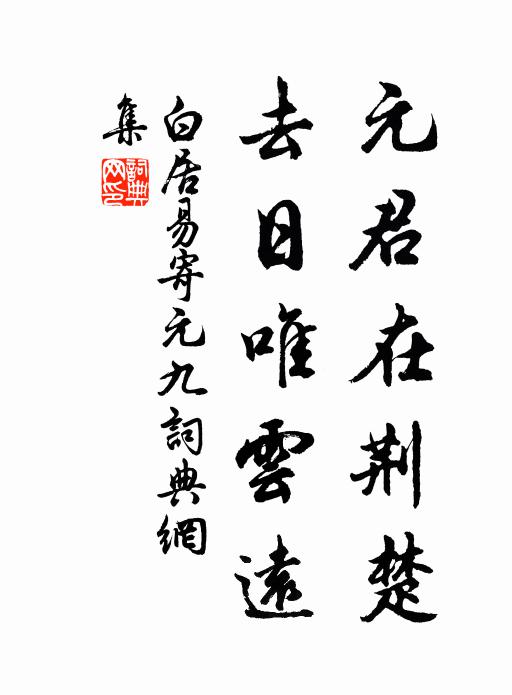 元君在荆楚
去日唯雲遠
白居易寄元九詞典網
集
詞典
网印